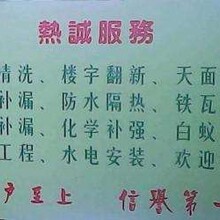 熱誠服務
清洗、楼宇翻新、天面
补漏、防水隔热、铁瓦
补漏、化学补强、白蚁
工程、水电安装、欢迎
户至上 信譽第